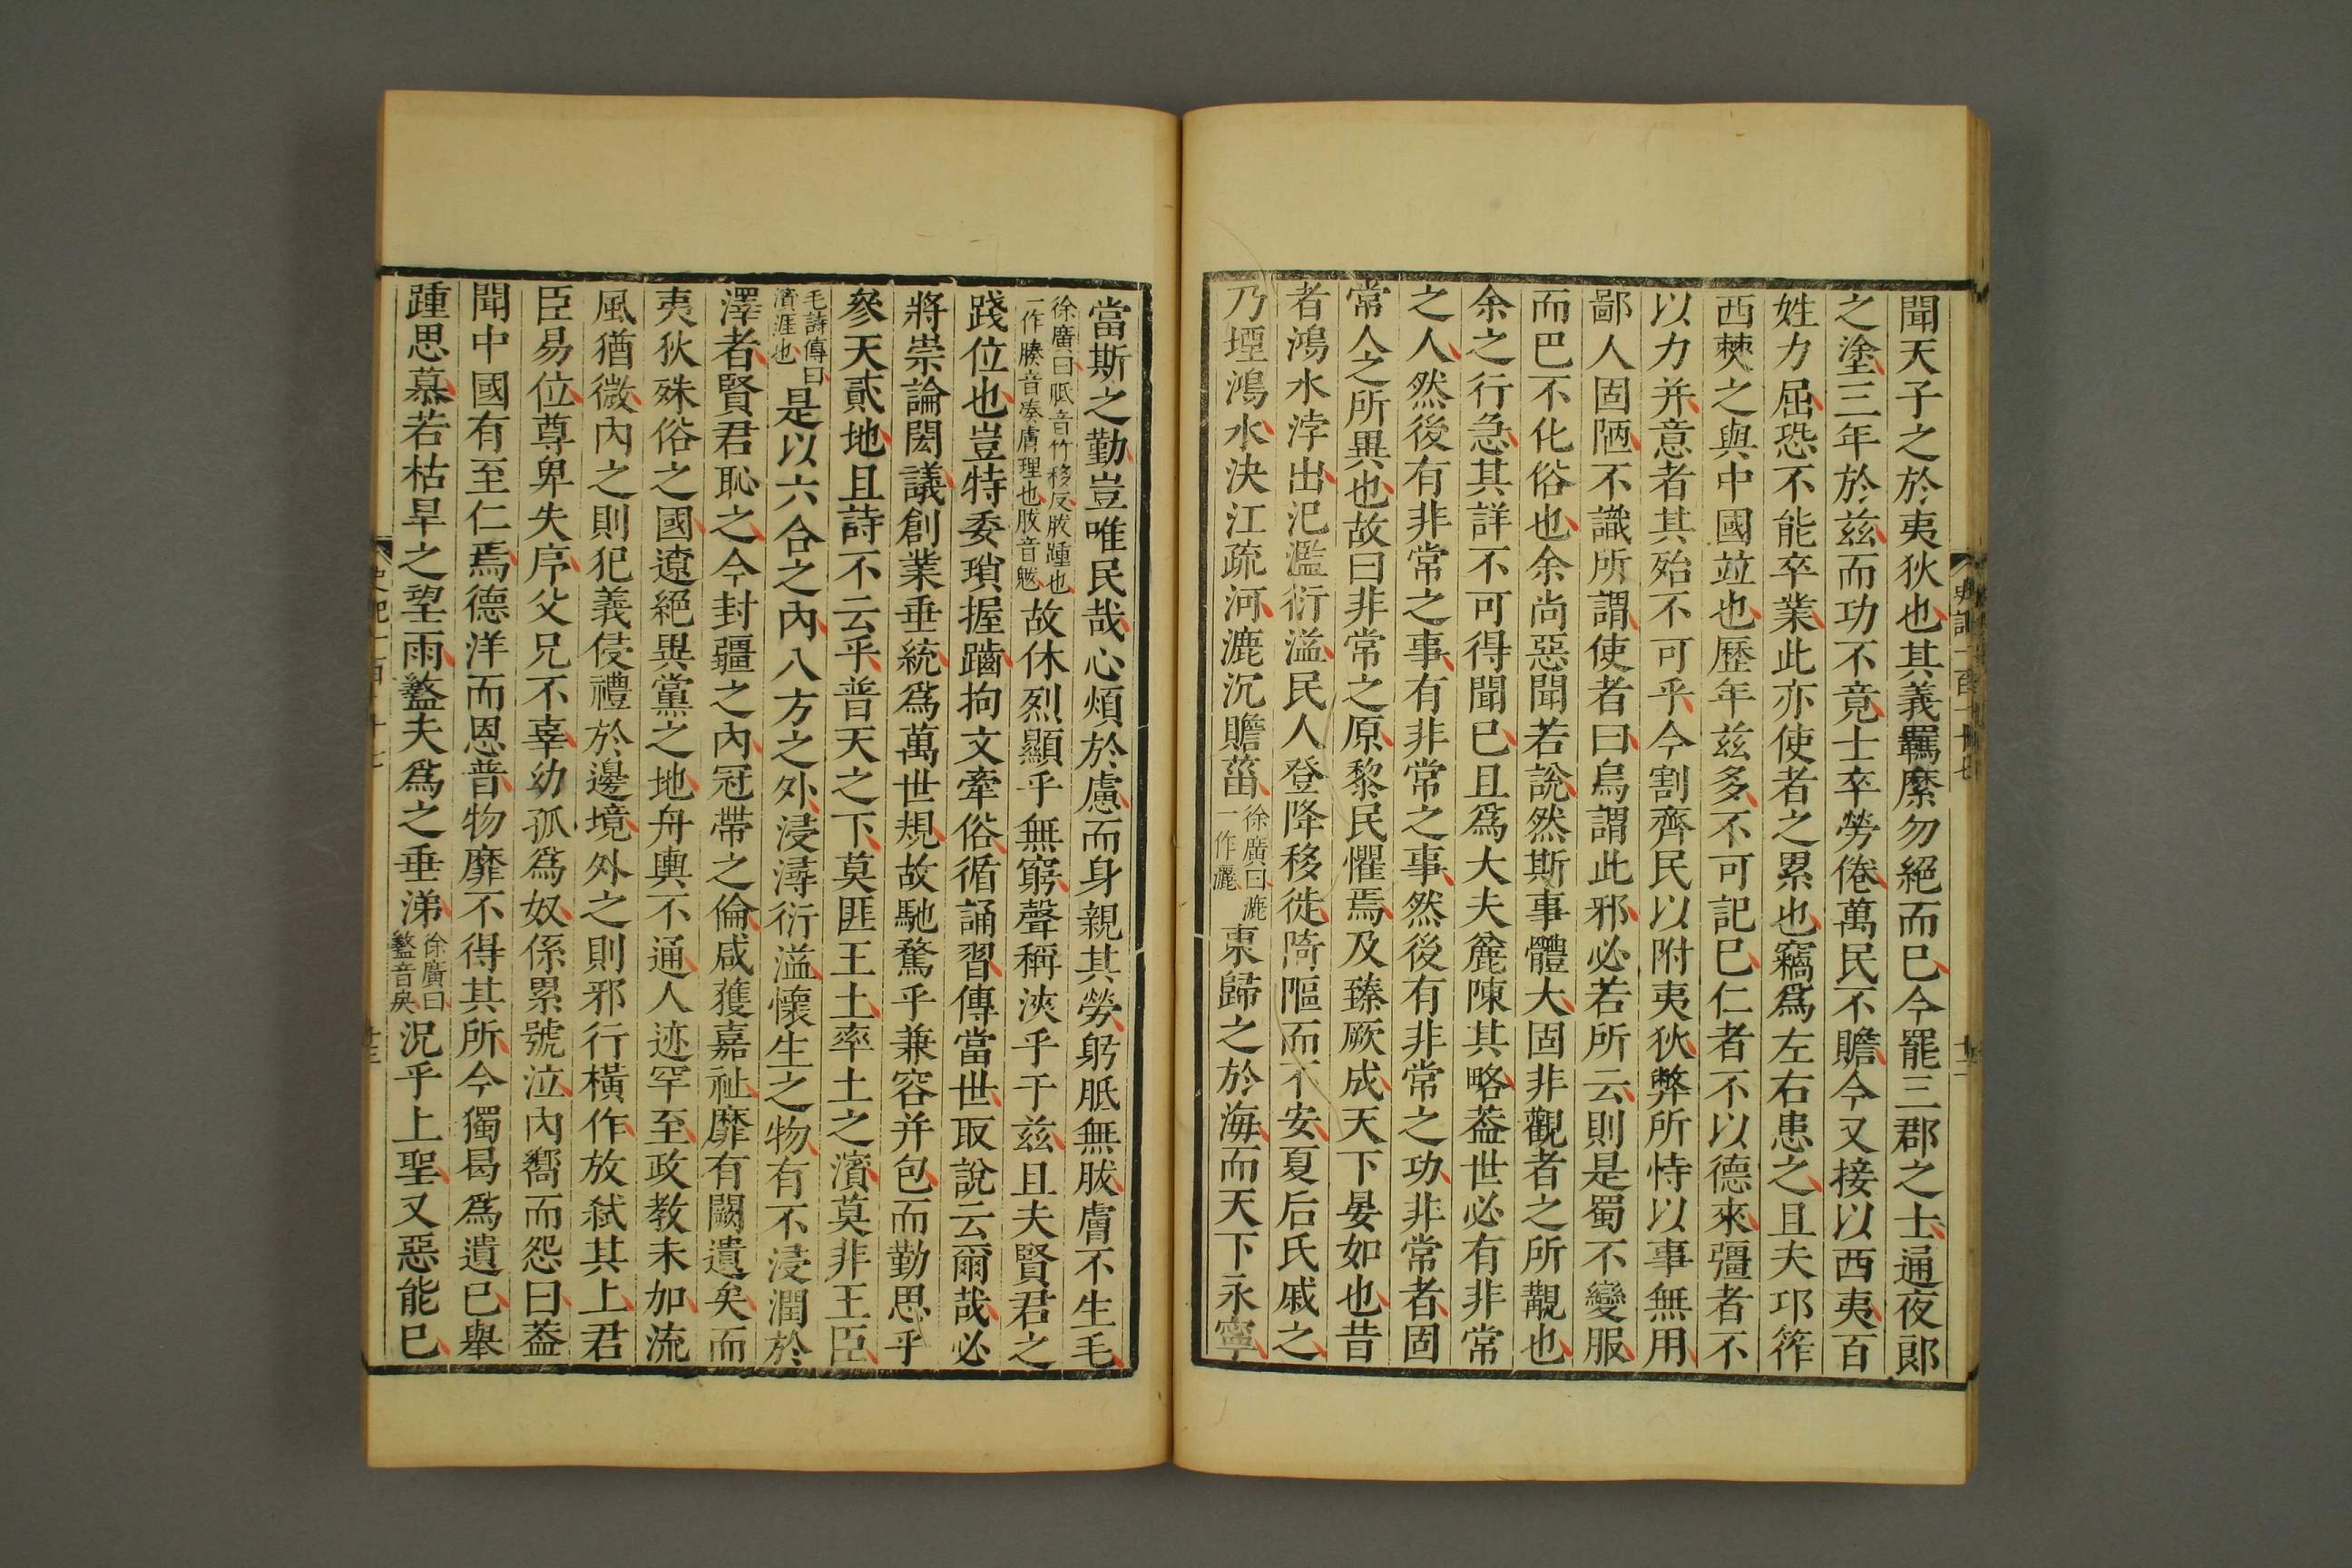 聞天子之於夷狄也其義羈縻勿絕而已今罷三郡之士通夜郎
之塗三年於茲而功不竟士卒勞倦萬民不贍今又接以西夷百
姓力屈恐不能卒業此亦使者之累也竊爲左右患之且夫邛筰
西僰之與中國竝也歷年茲多不可記已仁者不以德來彊者不
以力并意者其殆不可乎今割齊民以附夷狄弊所恃以事無用
鄙人固陋不識所謂使者曰烏謂此邪必若所云則是蜀不變服
而巴不化俗也余尚惡聞若說然斯事體大固非觀者之所覯也
余之行急其詳不可得聞已且爲大夫麄陳其略葢世必有非常
之人然後有非常之事有非常之事然後有非常之功非常者固
常人之所異也故曰非常之原黎民懼焉及臻厥成天下晏如也昔
者鴻水浡出氾濫衍溢民人登降移徙陭𨻲而不安夏后氏戚之
乃堙鴻水決江疏河漉沉贍菑徐廣曰漉一作灑東歸之於海而天下永寧
當斯之勤豈唯民哉心煩於慮而身親其勞躬胝無胈膚不生毛
徐廣曰胝音竹移反胈踵也一作腠音湊膚理也胈音魃故休烈顯乎無窮聲稱浹乎于茲且夫賢君之
踐位也豈特委瑣握齱拘文牽俗循誦習傳當世取說云爾哉必
將崇論閎議創業垂統爲萬世規故馳騖乎兼容并包而勤思乎
參天貳地且詩不云乎普天之下莫匪王土率土之濱莫非王臣
毛詩傳曰濱涯也是以六合之內八方之外浸潯衍溢懷生之物有不浸潤於
澤者賢君恥之今封疆之內冠帶之倫咸獲嘉祉靡有闕遺矣而
夷狄殊俗之國遼絕異黨之地舟輿不通人迹罕至政教未加流
風猶微內之則犯義侵禮於邊境外之則邪行橫作放弒其上君
臣易位尊卑失序父兄不辜幼孤爲奴係累號泣內嚮而怨曰葢
聞中國有至仁焉德洋而恩普物靡不得其所今獨曷爲遺已舉
踵思慕若枯旱之望雨盭夫爲之垂涕徐廣曰盭音戾況乎上聖又惡能已